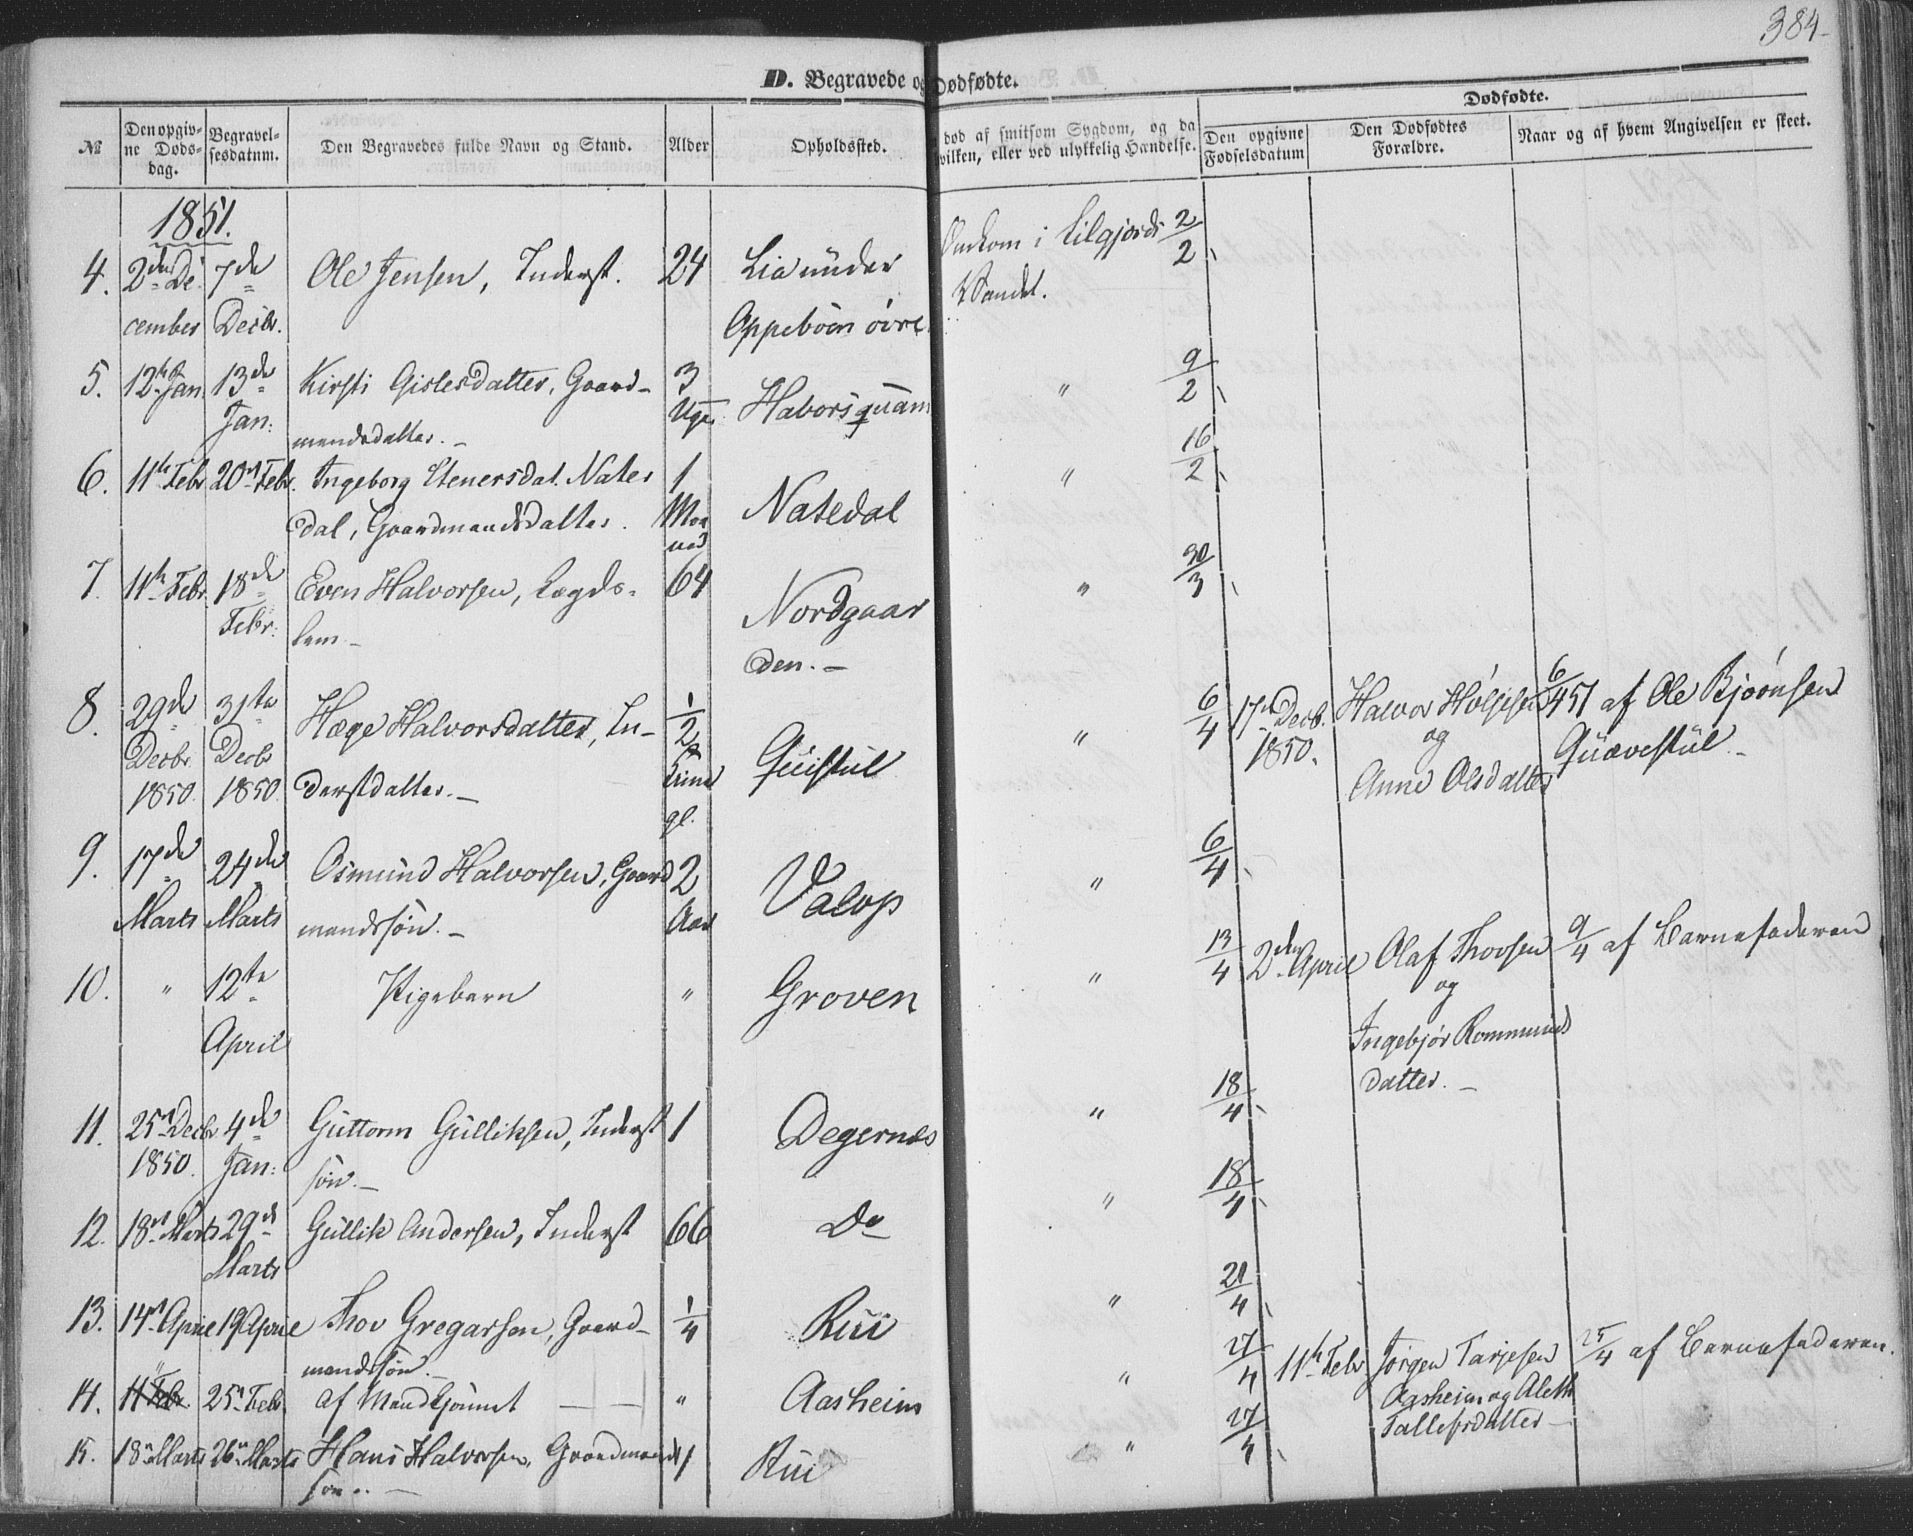 384
D. Begravede og Dødfødte.
№
Den opgivne Dødsdag.
Begravelsesdatum.
Den Begravedes fulde Navn og Stand.
Alder
Opholdssted.
død af smitsom Sygdom, og da
vilken, eller ved ulykkelig Hændelse.
Dødfødte.
Den opgivne Fødselsdatum
Den Dødfødtes Forældre.
Naar og af hvem Angivelsen er skeet.
1851.
4. 2den De- 7de Ole Jensen, Inderst. 24 Lia under Omkom i 2/2
cember Decbr. Oppebøen øvre Vandet.
5. 12te Jan 13de Kirsti Gislesdatter, Gaard- 3 Haborsquam " 9/2
Jan: mandsdatter. Uger
6. 11te Febr 20de Febr. Ingeborg Stenersdat. Nates 1 Natedal " 16/2
dal, Gaardmandsdatter. Maaned
7. 11te Febr. 18de Even Halvorsen, Lægds- 64 Nordgaar " 30/3
Febr: lem den.
8. 29de 31te Hæge Halvorsdatter, In- 1/2 Quistul " 6/4 17de Decbr. Halvor Holjesen 6/4 51 af Ole Bjørnsen
Decbr Decbr og Quævestul
1850. 1850 derstdatter. Time gl. 1850. Anne Olsdatter
9. 17de 24de Osmund Halvorsen, Gaard 2 Valop " 6/4
Marts Marts mandssøn. Aar
10. " 12te Pigebarn " Groven " 13/4 2den April Olaf Thovsen 9/4 af Barnefaderen
April og
Ingebjør Rommunds
datter.
11. 25de Decbr 4de Guttorm Gulliksen, Inderst 1 Degernæs " 18/4
1850. Jan: søn.
12. 18de Marts 29de Gullik Andersen, Inderst 66 Do " 18/4
Marts
13. 14de April 19 April Thov Gregarsen, Gaard- 1/4 Rui " 21/4
mandssøn.
14. " 11 Febr. 25de Febr. af Mandkjønnet " Aasheim " 27/4 11te Febr Jørgen Tarjesen 25/4 af Barnefaderen.
Aasheim og Aleth
Tallefsdatter
15. 18de Marts 26de Marts Hans Halvorsen, Gaardmands 1 Rui " 27/4
søn.